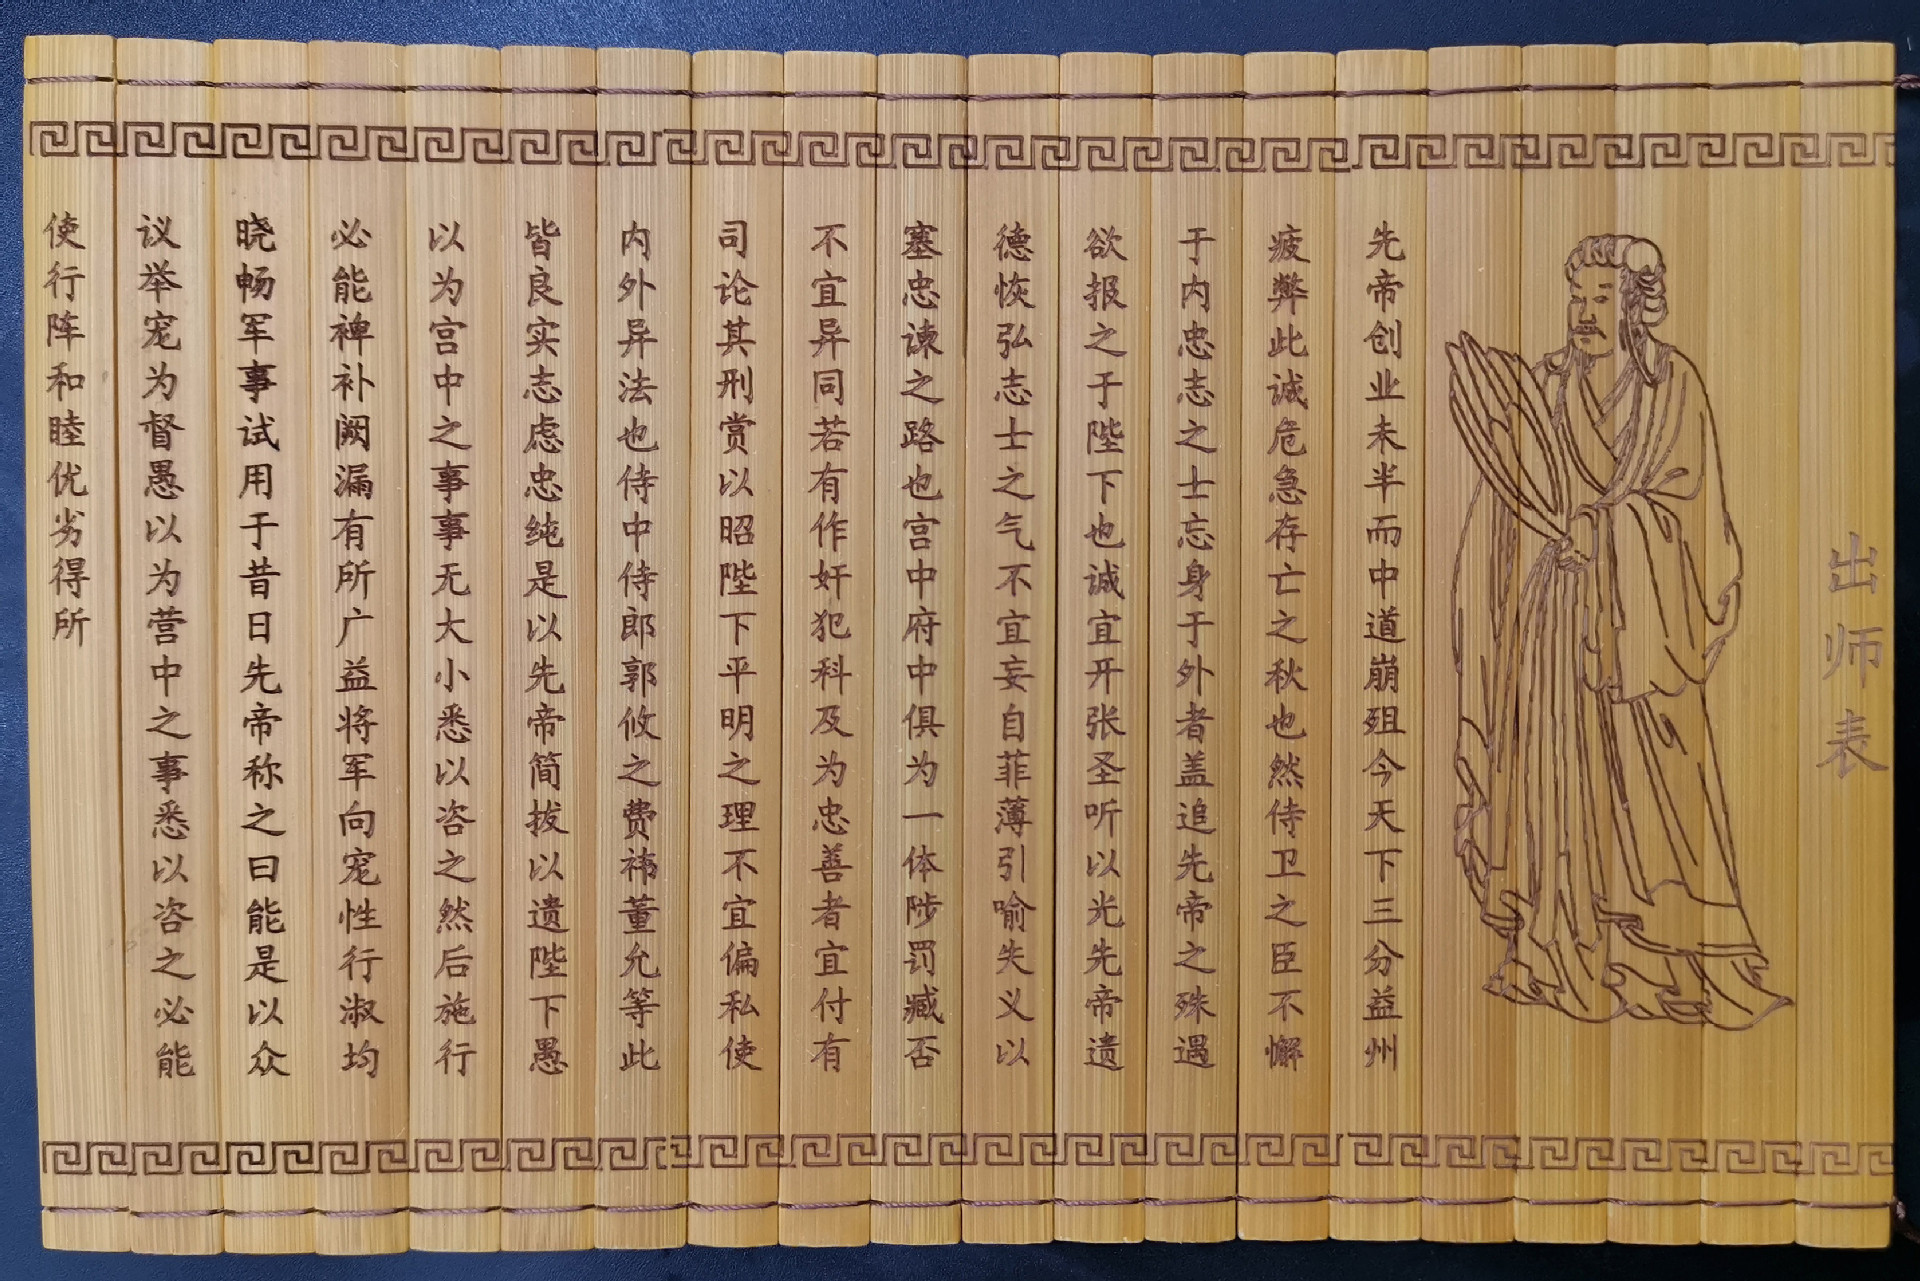 出师表
先帝创业未半而中道崩殂今天下三分益州
疲弊此诚危急存亡之秋也然侍卫之臣不懈
于内忠志之士忘身于外者盖追先帝之殊遇
欲报之于陛下也诚宜开张圣听以光先帝遗
德恢弘志士之气不宜妄自菲薄引喻失义以
塞忠谏之路也宫中府中俱为一体陟罚臧否
不宜异同若有作奸犯科及为忠善者宜付有
司论其刑赏以昭陛下平明之理不宜偏私使
内外异法也侍中侍郎郭攸之费祎董允等此
皆良实志虑忠纯是以先帝简拔以遗陛下愚
以为宫中之事事无大小悉以咨之然后施行
必能裨补阙漏有所广益将军向宠性行淑均
晓畅军事试用于昔日先帝称之曰能是以众
议举宠为督愚以为营中之事悉以咨之必能
使行阵和睦优劣得所